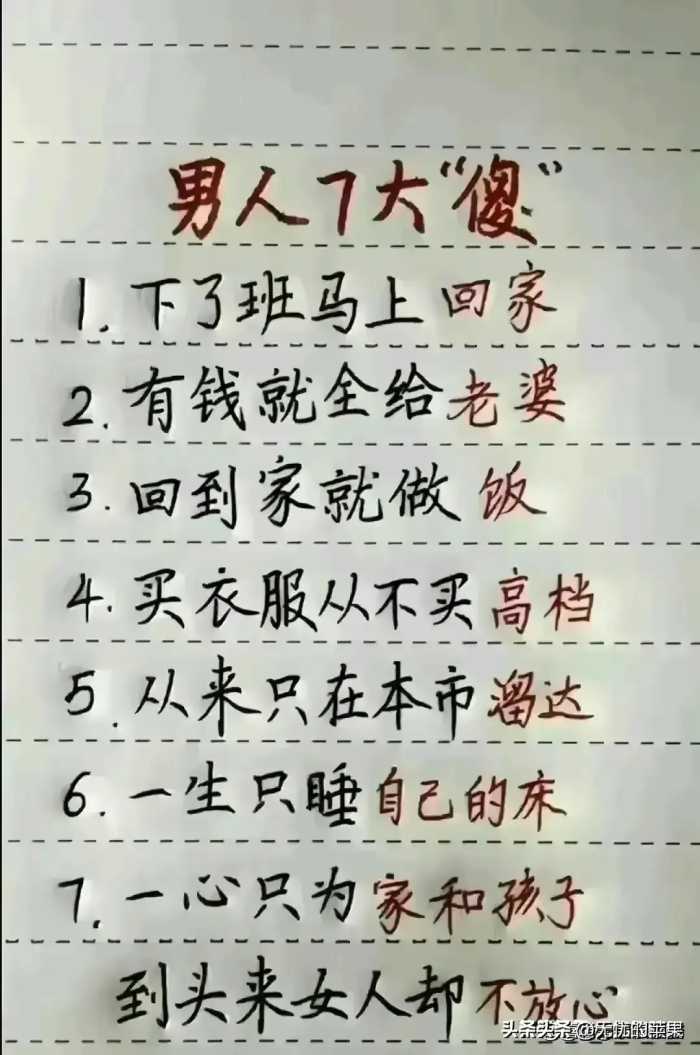 男人7大“傻”
1. 下了班马上回家
2. 有钱就全给老婆
3. 回到家就做饭
4. 买衣服从不买高档
5. 从来只在本市溜达
6. 一生只睡自己的床
7. 一心只为家和孩子
到头来女人却不放心
头条@无忧的苹果